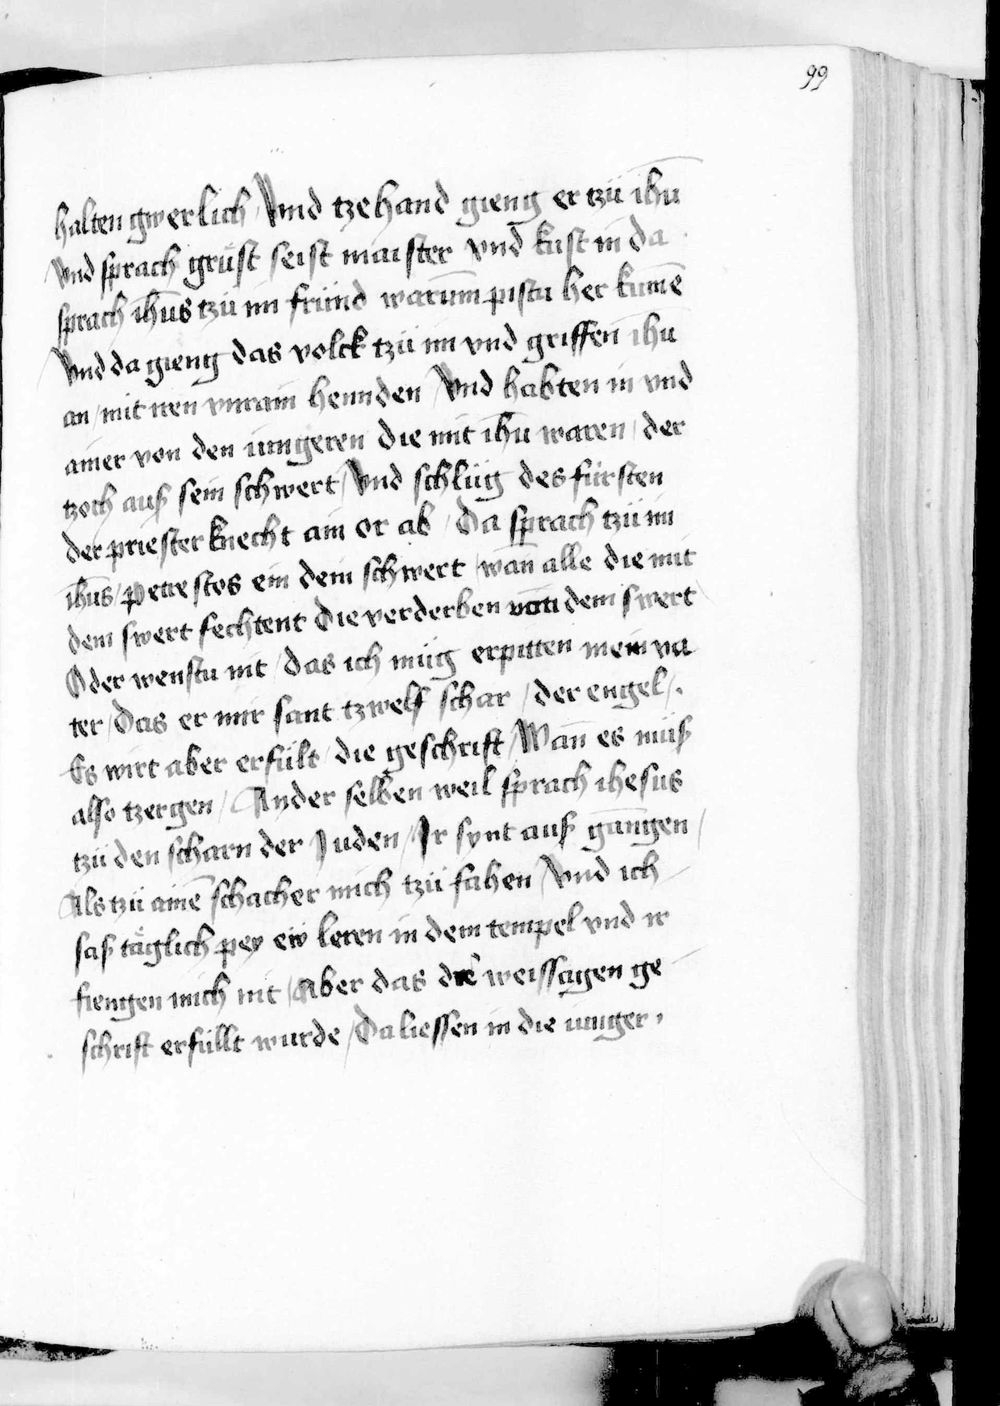 99
halten gwerlich / Vnd tzehand gieng er tzů ihū
Vnd sprach grüst seist maister vnd kust in da
sprach ihūs tzů im fründ warum̄ pistu her kumē
Vnd da gieng das volck tzů im vnd griffen ihū
an / mit iren vnrain hennden Vnd habten in vnd
ainer von den iungeren die mit ihū waren / der
tzoch auß sein schwert / Vnd schlůg des fürsten
der priester knecht ain or ab / Da sprach tzů im
ihūs / petre stos ein dein schwert / wan̄ alle die mit
dem swert fechtent Die verderben von dem swert
Oder wenstu nit / das ich müg erpitten mein va
ter / Das er mir sant tzwelf schar / der engel /.
Es wirt aber erfült / die geschrift / Wan̄ es můß
also tzergen / An der selben weil sprach ihesus
tzů den scharn der Juden / Ir synt auß gangen /
Als tzů ainē schacher mich tzů fahen / Vnd ich
saß täglich pey eẅ leren in dem tempel vnd ir
fiengen mich nit / Aber das die weissagen ge
schrift erfüllt wurde / Da liessen in die iunger ,